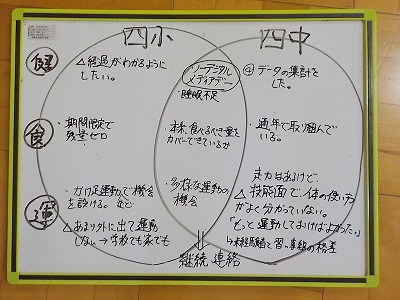 四小
四中
健
△経過がわかるように
したい。
ノーデジタル
メディアデー
・睡眠不足
データの集計を
した。
食
・期間限定で
残量ゼロ
食べるべき量を
カバーできているか
・通年で取り組んで
いる。
運
・かけ足運動で機会
を設ける。など
△あまり外に出て運動
しない→学校でも家でも
・多様な運動の
機会
走力はあるけど、
△技能面で、体の使い方
がよく分かっていない。
「もっと運動しておけばよかった。」
↳未経験者と習い事組の格差
継続 連絡